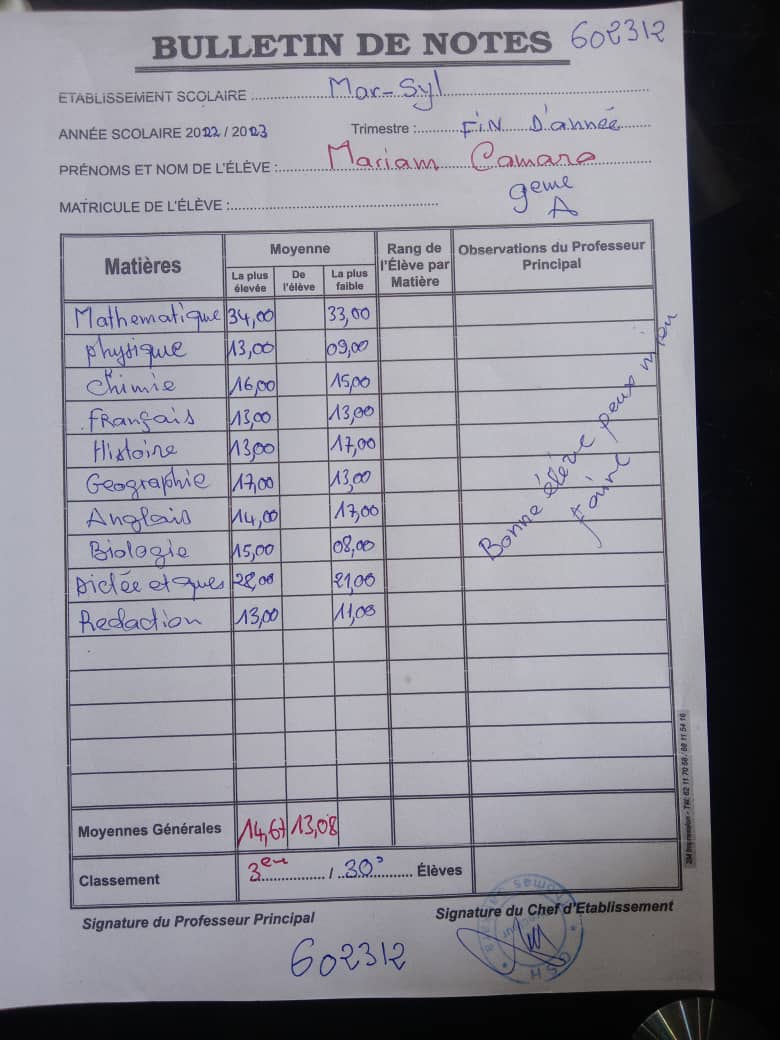 BULLETIN DE NOTES 602312
ETABLISSEMENT SCOLAIRE Mar-Syl
ANNÉE SCOLAIRE 2022 / 2023 Trimestre : FiN D'année
PRÉNOMS ET NOM DE L'ÉLÈVE : Mariam Camara
9eme
MATRICULE DE L'ÉLÈVE : A
Matières Moyenne Rang de l'Élève par Matière Observations du Professeur Principal
La plus élevée De l'élève La plus faible
Mathematique 34,00 33,00
physique 13,00 09,00
chimie 16,00 15,00
français 13,00 13,00
Histoire 13,00 17,00
Geographie 17,00 13,00
Anglais 14,00 17,00
Biologie 15,00 08,00
Dictée et ques 28,00 21,00
Redaction 13,00 11,00
Bonne élève peux
faire
Moyennes Générales 14,67 13,08
Classement 3eu / 30 Élèves
Signature du Professeur Principal Signature du Chef d'Etablissement
602312